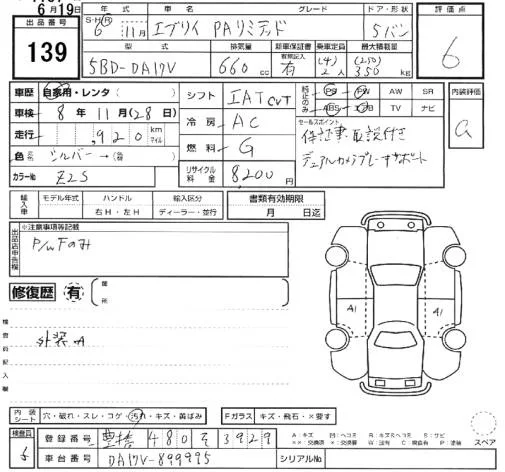 6月19日
出品番号
139
年式 車名 グレード ドア・形状 評価点
S・H・R 6年 11月 エブリィ PAリミテッド 5バン 6
型式 排気量 新車保証書 乗車定員 最大積載量
5BD-DA17V 660cc 有 (4) 2人 (250) 350kg
車歴 自家用・レンタ( )
車検 8年 11月(28日)
走行 920 km マイル
色 シルバー→(
カラーNo Z2S
シフト IAT CVT
冷房 AC
燃料 G
リサイクル料金 8,200円
純正のみ
PS PW AW SR
ABS エアB TV ナビ
内装評価
a
セールスポイント
保証書・取説付き
デュアルカメラブレーキサポート
輸入車 モデル年式 ハンドル 輸入区分 書類有効期限
右H・左H ディーラー・並行 月 日迄
出品店申告欄
※注意事項等記載
P/WFのみ
修復歴 有 ( 箇所
検査員記入欄
外装A
A1
A1
内装シート 穴・破れ・スレ・コゲ・汚れ・キズ・黄ばみ Fガラス キズ・飛石・×要す
スペア
検査員
登録番号 豊橋 480 そ 3929
車台番号 DA17V-899995 シリアルNo
A:キズ U:ヘコミ